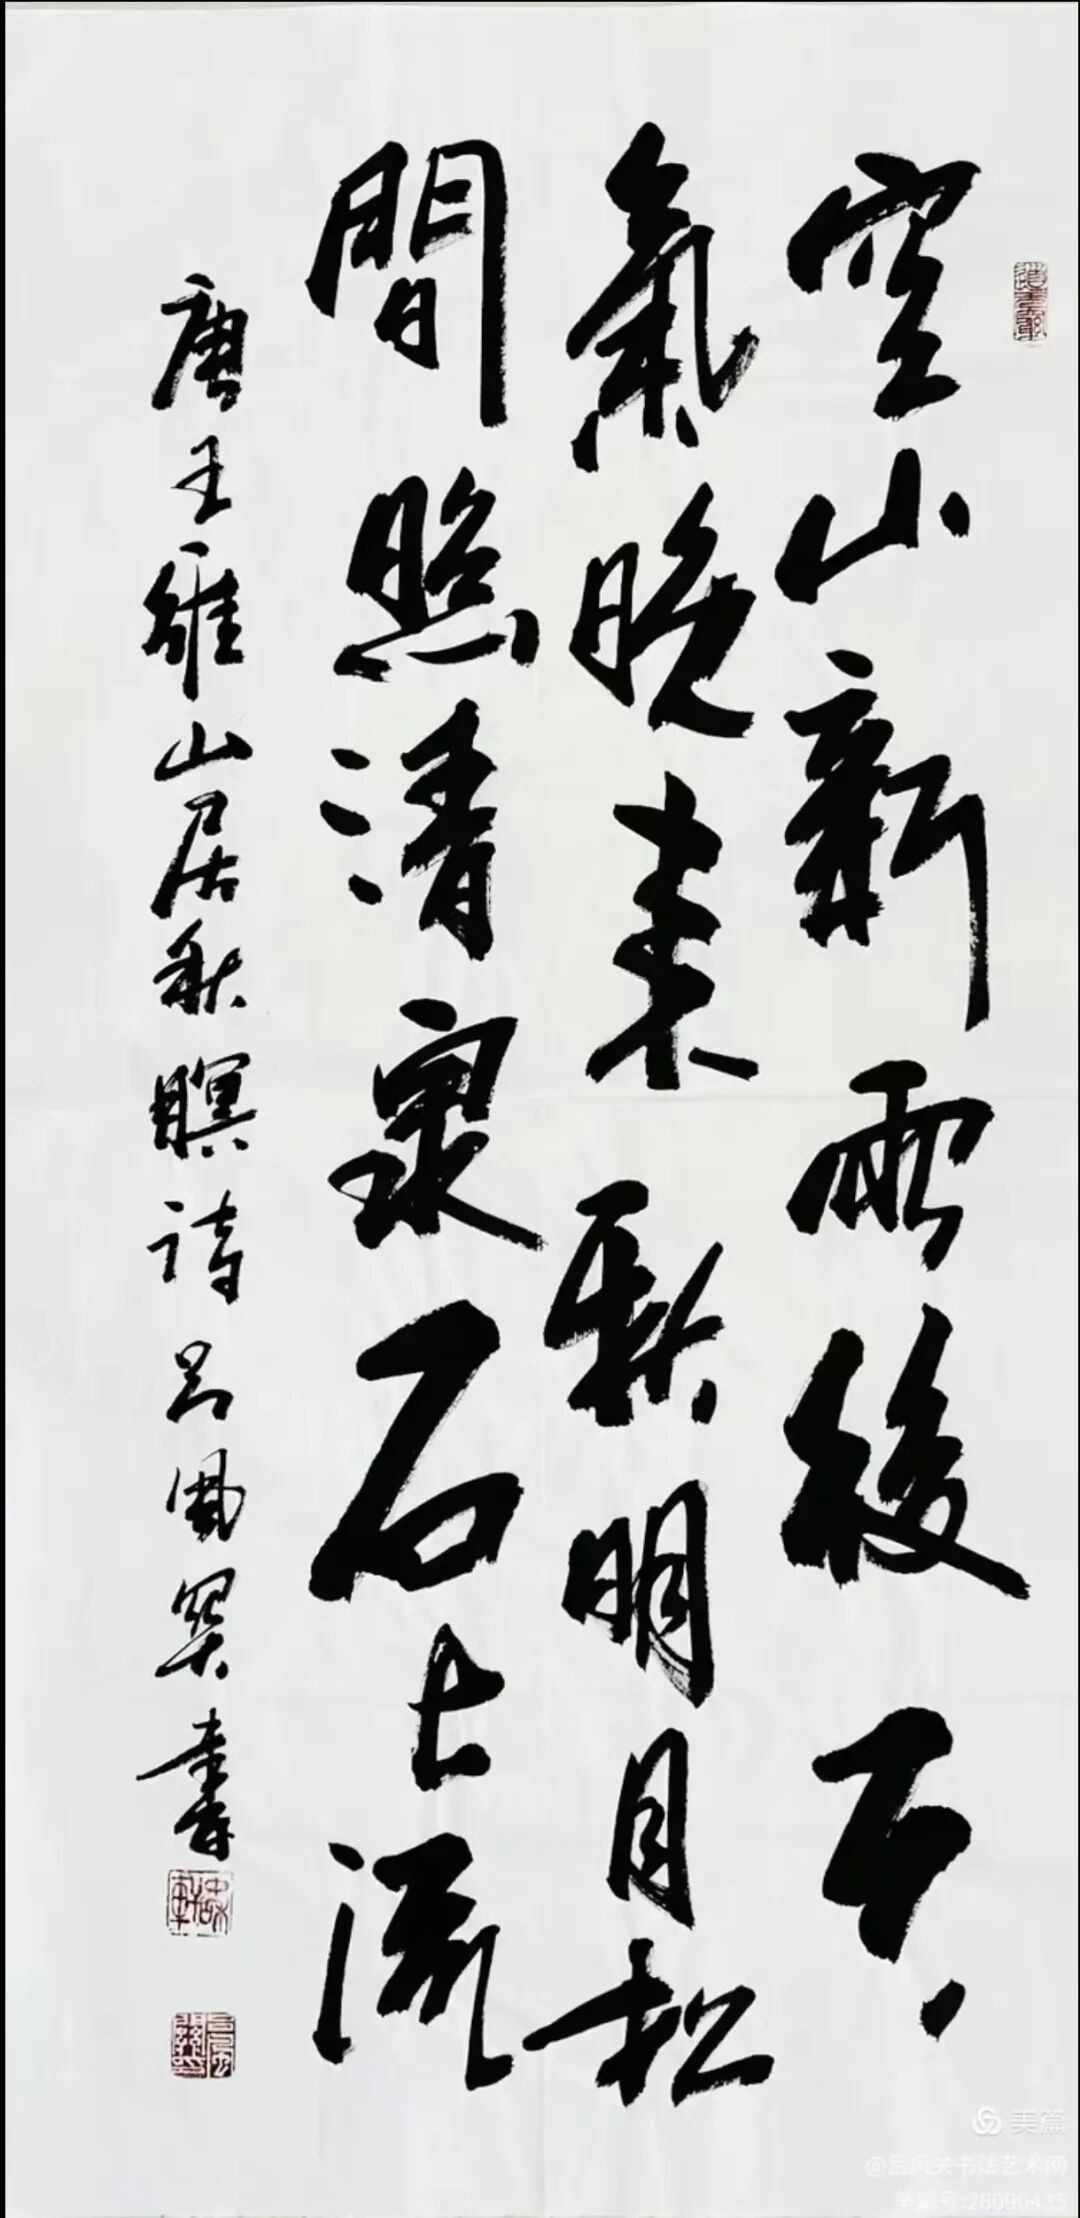 空山新雨後天
氣晚来秋明月松
間照清泉石上流
唐王維山居秋瞑詩吕風関書
美篇
@吕风关书法艺术网
美篇号:28090435